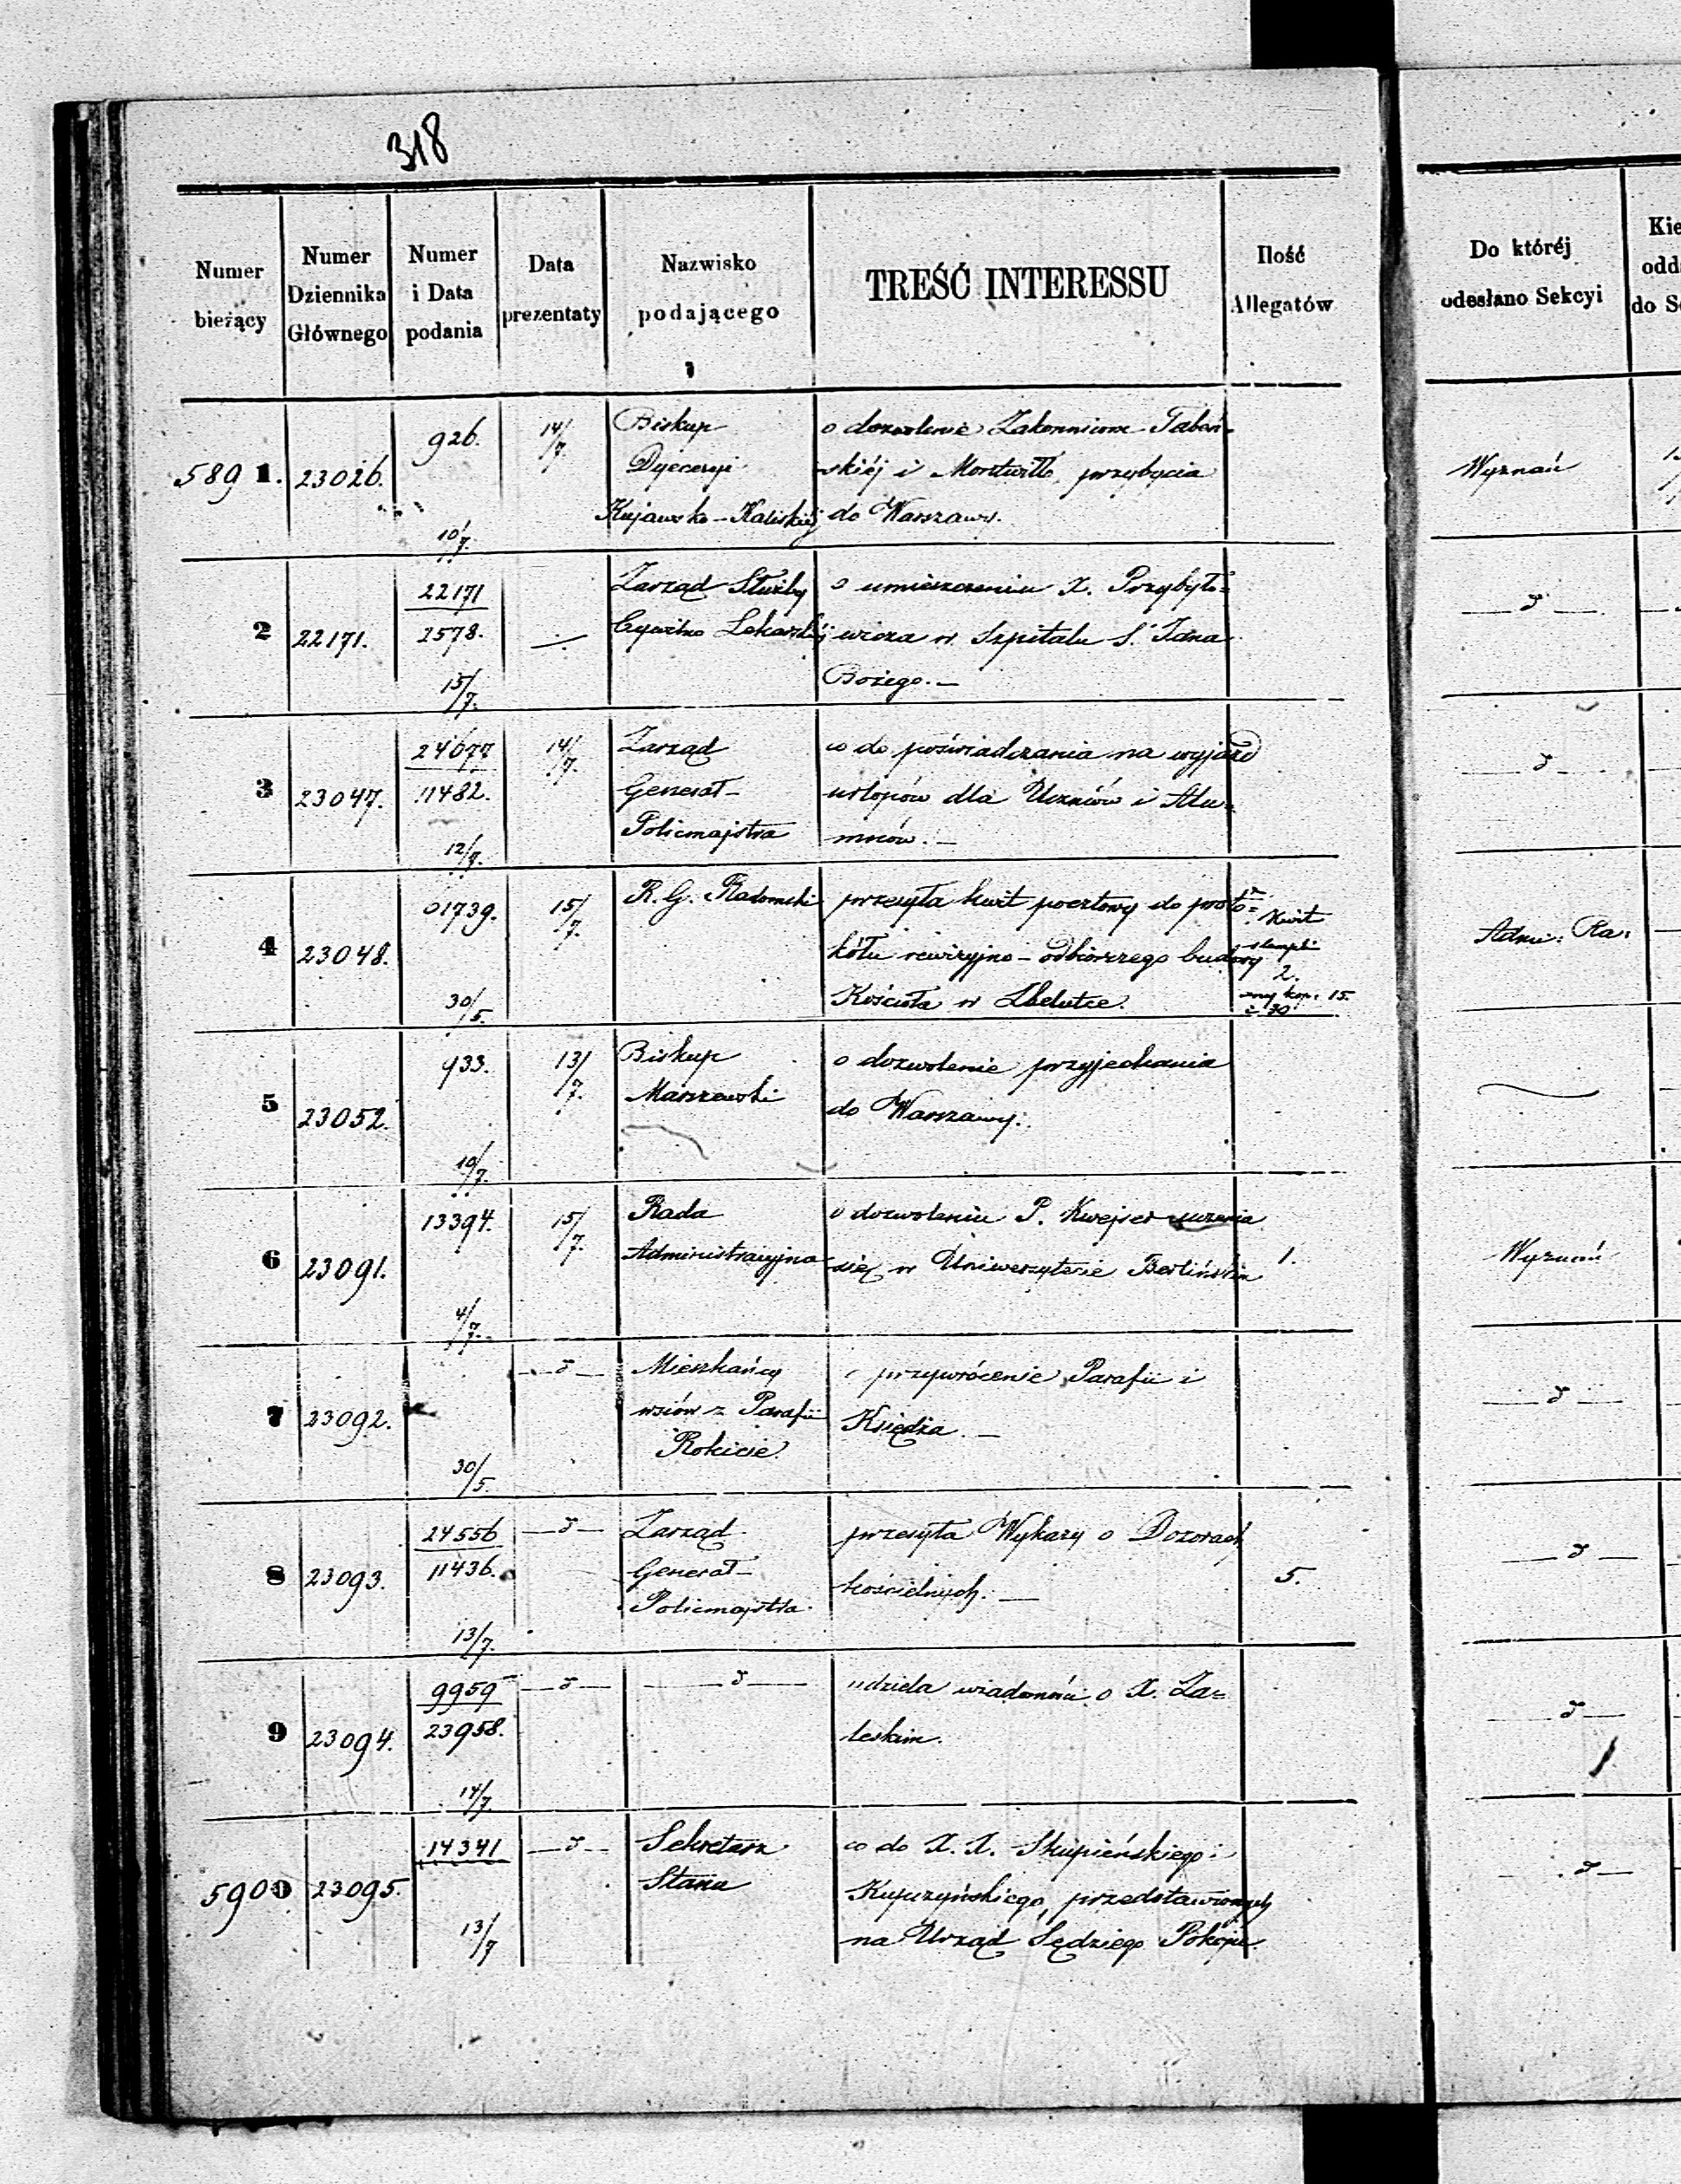 318
Numer bieżący
Numer Dziennika Głównego
Numer i Data podania
Data prezentaty
Nazwisko podającego
TREŚĆ INTERESSU
Ilość Allegatów
Do któréj odesłano Sekcyi
Kie
odd
do S
5891. 23026. 926. 14/7. Biskup o dozwolenie Zakonnicom Tabań-
Dyecezyi skiéj i Montwiłło, przybycia Wyznań
Kujawsko-Kaliskiéj do Warszawy.
10/7.
2 22171. 22171 Zarząd Służby o umieszczeniu X. Przybyło=
2578. Cywilno Lekarskiéj wicza w Szpitalu S. Jana d
15/7. Bożego.—
3 23047. 24677 14/7. Zarząd co do poświadczania na wyjazd
11482. Generał- urlopów dla Uczniów i Alu= d
12/7. Policmajstra mnów.—
4 23048. 01739. 15/7. R. G. Radomski przesyła kwit pocztowy do proto= Kwit
kółu rewizyjno-odbiorczego budowy stempli 2. Adm: Ra:
30/5. Kościoła w kop. 15.
30
5 23052. 933. 13/7. Biskup o dozwolenie przyjechania
Marszewski do Warszawy.
10/7.
6 23091. 13394. 15/7. Rada o dozwoleniu P. Kwejser uczenia
Administracyjna się w Uniwersytecie Berlińskim 1. Wyznań
4/7.
7 23092. d Mieszkańcy o przywrócenie Parafii i
wsiów z Parafii Księdza.— d
30/5. Rokicie.
8 23093. 24556 d Zarząd przesyła Wykazy o Dozorach
11436. Generał- kościelnych.— 5. d
13/7. Policmajstra
9 23094. 9959 d d udziela wiadomości o X. Za=
23958. leskim. d
14/7.
5900 23095. 14341 d Sekretarz co do X. X. Skupieńskiego i
Stanu przedstawionych d
13/7 na Urząd Sędziego Pokoju.